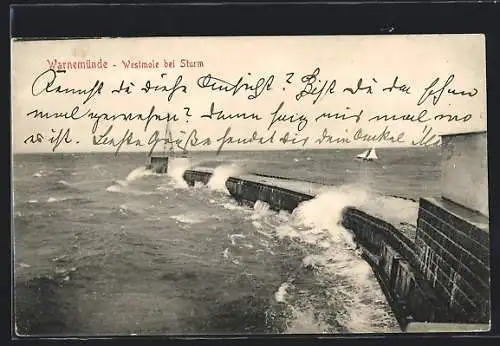 Warnemünde - Westmole bei Sturm
Kennst du diese Ansicht? Bist du da schon
mal gewesen? Dann sag' mir mal wo
das ist. Liebste Grüße sendet dir dein Onkel